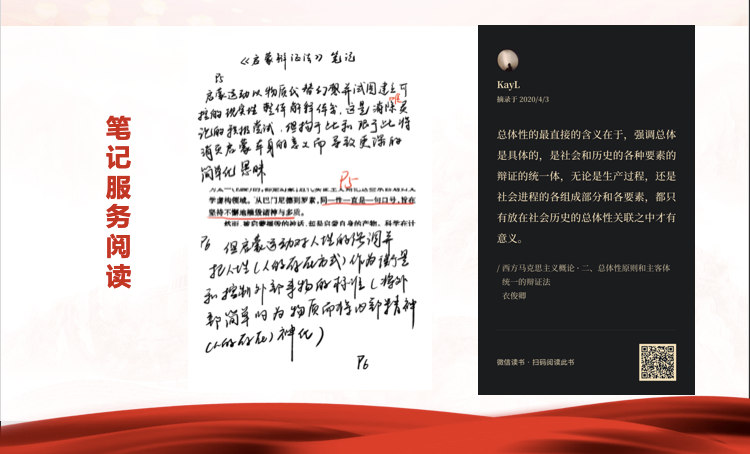 笔记服务阅读
《启蒙辩证法》笔记
P5
启蒙运动以物质代替幻想并试图建立可
控的现实性整体解释体系,这是消除灵
简单化思味
P5
学虚构领域。从巴门尼德到罗素,同一性一直是一句口号,旨在
坚持不懈地摧毁诸神与多质。
然而,被启蒙摧毁的神话,却是启蒙自身的产物。科学在计
P6 但启蒙运动对人性的强调并
把人性(人的存在方式)作为衡量
和控制外部事物的标准(将外
部简单归为物质而将内部精神
(人的存在)神化)
P6
KayL
摘录于 2020/4/3
总体性的最直接的含义在于,强调总体
是具体的,是社会和历史的各种要素的
辩证的统一体,无论是生产过程,还是
社会进程的各组成部分和各要素,都只
有放在社会历史的总体性关联之中才有
意义。
/ 西方马克思主义概论 · 二、总体性原则和主客体
统一的辩证法
衣俊卿
微信读书 · 扫码阅读此书